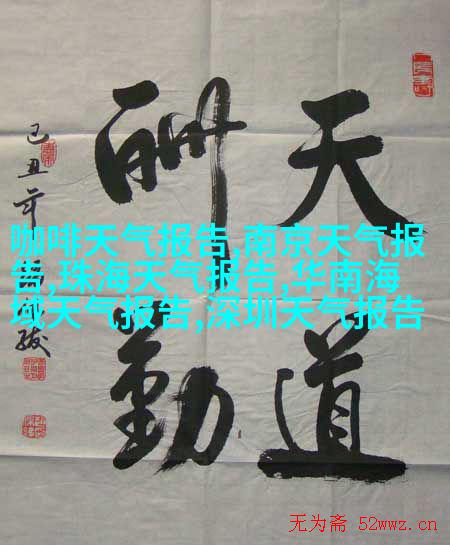 天道
酬勤
己丑年
咖啡天气报告,南京天气报
告,珠海天气报告,华南海
域天气报告,深圳天气报告
无为斋 52wwz.cn